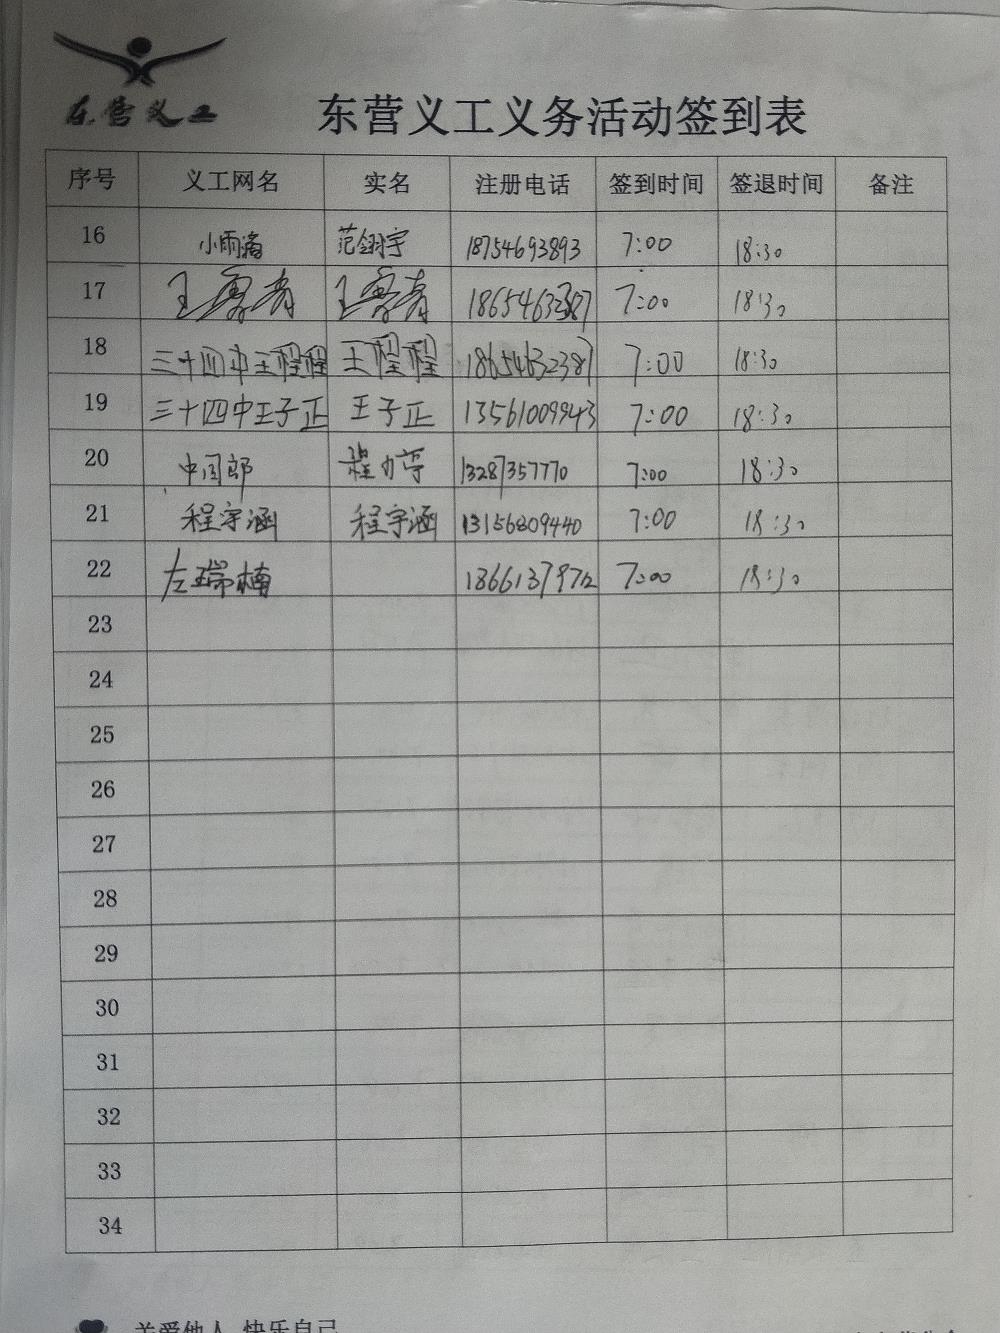 东营义工
东营义工义务活动签到表
序号 义工网名 实名 注册电话 签到时间 签退时间 备注
16 小雨滴 范翎宇 18754693893 7:00 18:30
17 王 青 王 青 18654632387 7:00 18:30
18 三十四中王程程 王程程 18654632387 7:00 18:30
19 三十四中王子正 王子正 13561009943 7:00 18:30
20 中国郎 程 13287357770 7:00 18:30
21 程宇涵 程宇涵 13156809440 7:00 18:30
22 左瑞楠 7:00 18:30
23
24
25
26
27
28
29
30
31
32
33
34
关爱他人 快乐自己